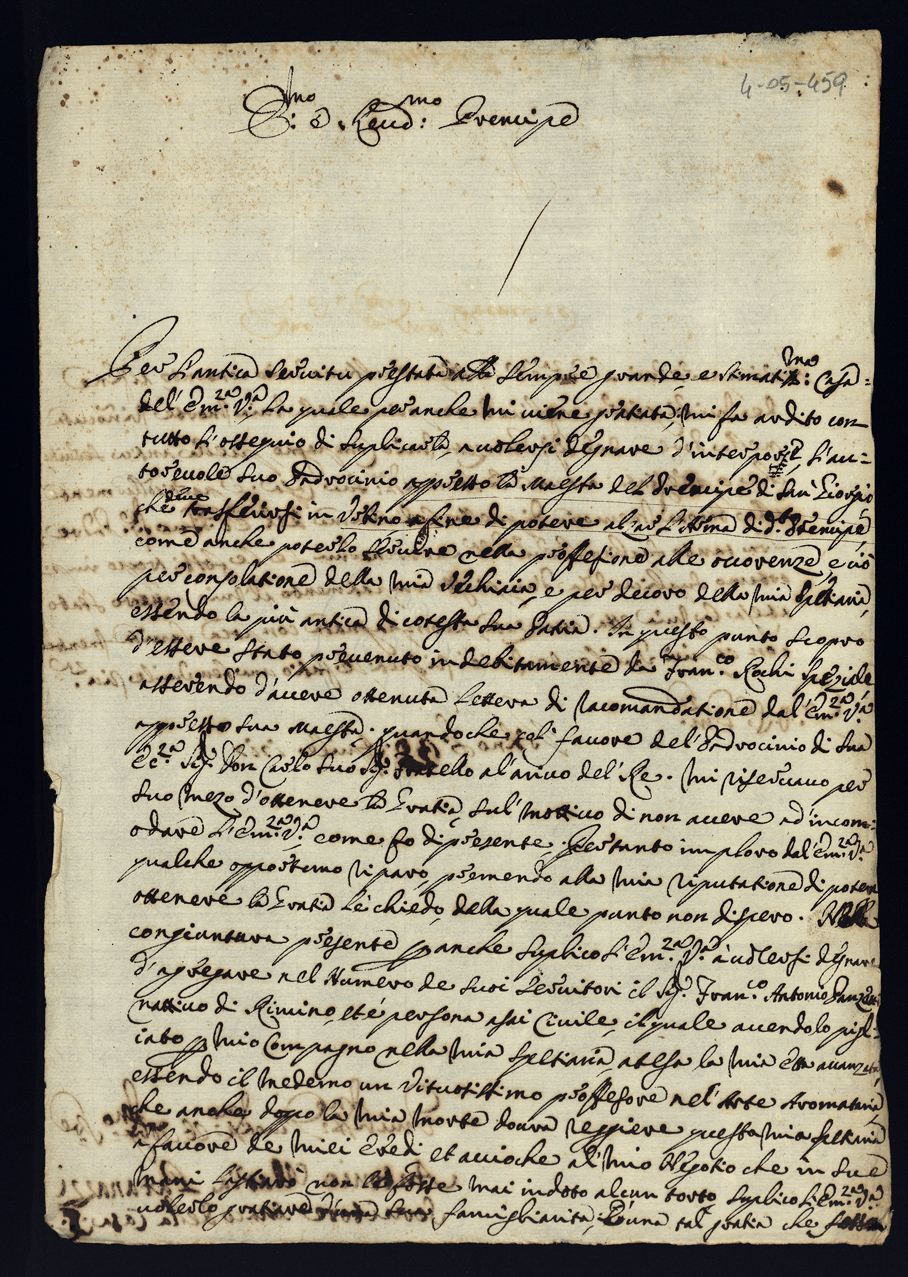 4-05-459
E:mo e Reud:mo Prencipe
Per l'antica seruitu prestata alla sempre grande, e stimatis:ma Casa
del'Em.za V.a la quale per anche mi uiene gratiata, mi fa ardito con
tutto l'ossequio di suplicarla a uolersi degnare d'interporre l'au=
toreuole suo Padrocinio appresso la Maesta del Prencipe di San Giorgio
che deue trasferirsi in Vrbino a fine di potere alzare l'Arma di d.to Prencipe
come anche poterlo seruire nella proffesione alle occorenze, e ciò
per consolatione della mia Vechiaia, e per decoro della mia Speltiaria
essendo la più antica di cotesta sua Patria. In questo punto scopro
d'essere stato preuenuto indebitamente da Fran.co Rochi Speziale
asserendo d'auere ottenuta lettera di racomandatione dal'Em.za V.a
appresso sua Maestà, quando che col fauore del Padrocinio di Sua
Ec.za Sig. Don Carlo suo Sig. Fratello al'ariuo del Re. mi riseruauo per
suo mezo d'ottenere la Gratia, sul mottiuo di non auere ad'incom=
odare l'Em.za V.a come fo di presente. Per tanto imploro dal'Em.za V.a
qualche opportuno riparo, premendo alla mia riputatione di potere
ottenere la Gratia le chiedo della quale punto non dispero. Nella
congiuntura presente per anche suplico l'Em.za V.a à uolersi degnare
d'agregare nel Numero de suoi Seruitori il Sig. Fran.co Antonio
nattiuo di Rimino, et è persona asai Ciuile, il quale auendolo pigl=
iato per mio Compagno nella mia Speltiaria, atesa la mia età auanzata,
essendo il medemo un Virtuosissimo proffesore nel'Arte Aromataria,
che anche doppo la mia morte dourà reggiere questa mia Speltiaria
a fauore de miei Eredi et accioche al mio Negotio che in sue
mani lasciarò non le fosse mai indoto alcun torto suplico l'Em.za V.a
uolerlo gratiare d'una sua famigliarita, P'una tal gratia che